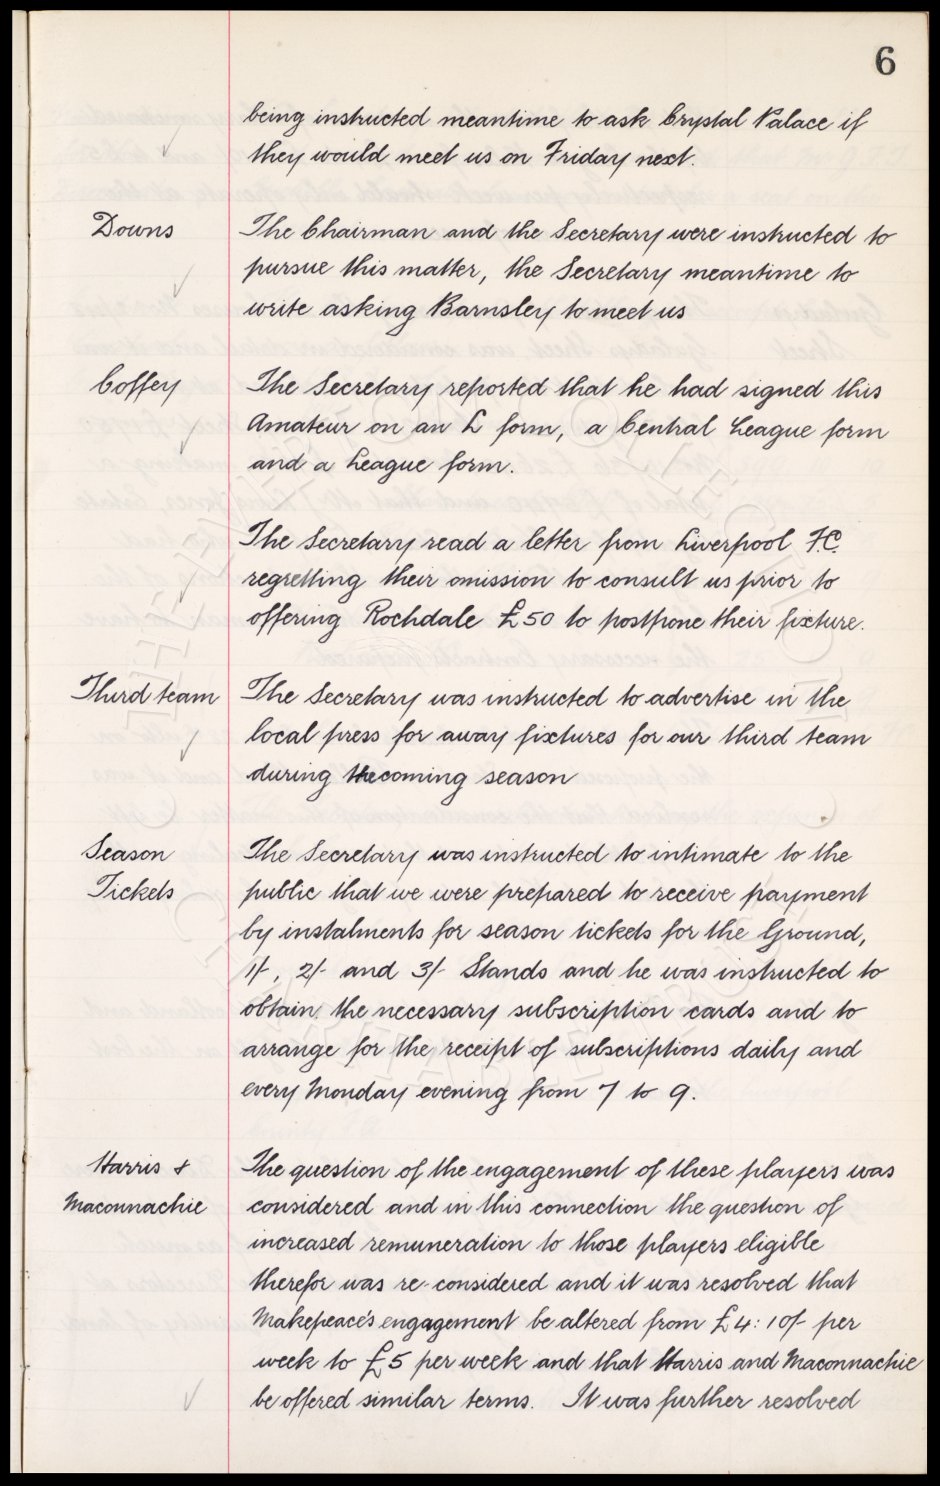 6
being instructed meantime to ask Crystal Palace if
they would meet us on Friday next.
Downs
The Chairman and the Secretary were instructed to
pursue this matter, the Secretary meantime to
write asking Barnsley to meet us
Coffey
The Secretary reported that he had signed this
Amateur on an L form, a Central League form
and a League form.
The Secretary read a letter from Liverpool F.C.
regretting their omission to consult us prior to
offering Rochdale £50 to postpone their fixture.
Third team
The Secretary was instructed to advertise in the
local press for away fixtures for our third team
during the coming season
Season
Tickets
The Secretary was instructed to intimate to the
public that we were prepared to receive payment
by instalments for season tickets for the Ground,
1/-, 2/- and 3/- Stands and he was instructed to
obtain the necessary subscription cards and to
arrange for the receipt of subscriptions daily and
every Monday evening from 7 to 9.
Harris &
Maconnachie
The question of the engagement of these players was
considered and in this connection the question of
increased remuneration to those players eligible
therefor was re-considered and it was resolved that
Makepeace's engagement be altered from £4:10/- per
week to £5 per week and that Harris and Maconnachie
be offered similar terms. It was further resolved